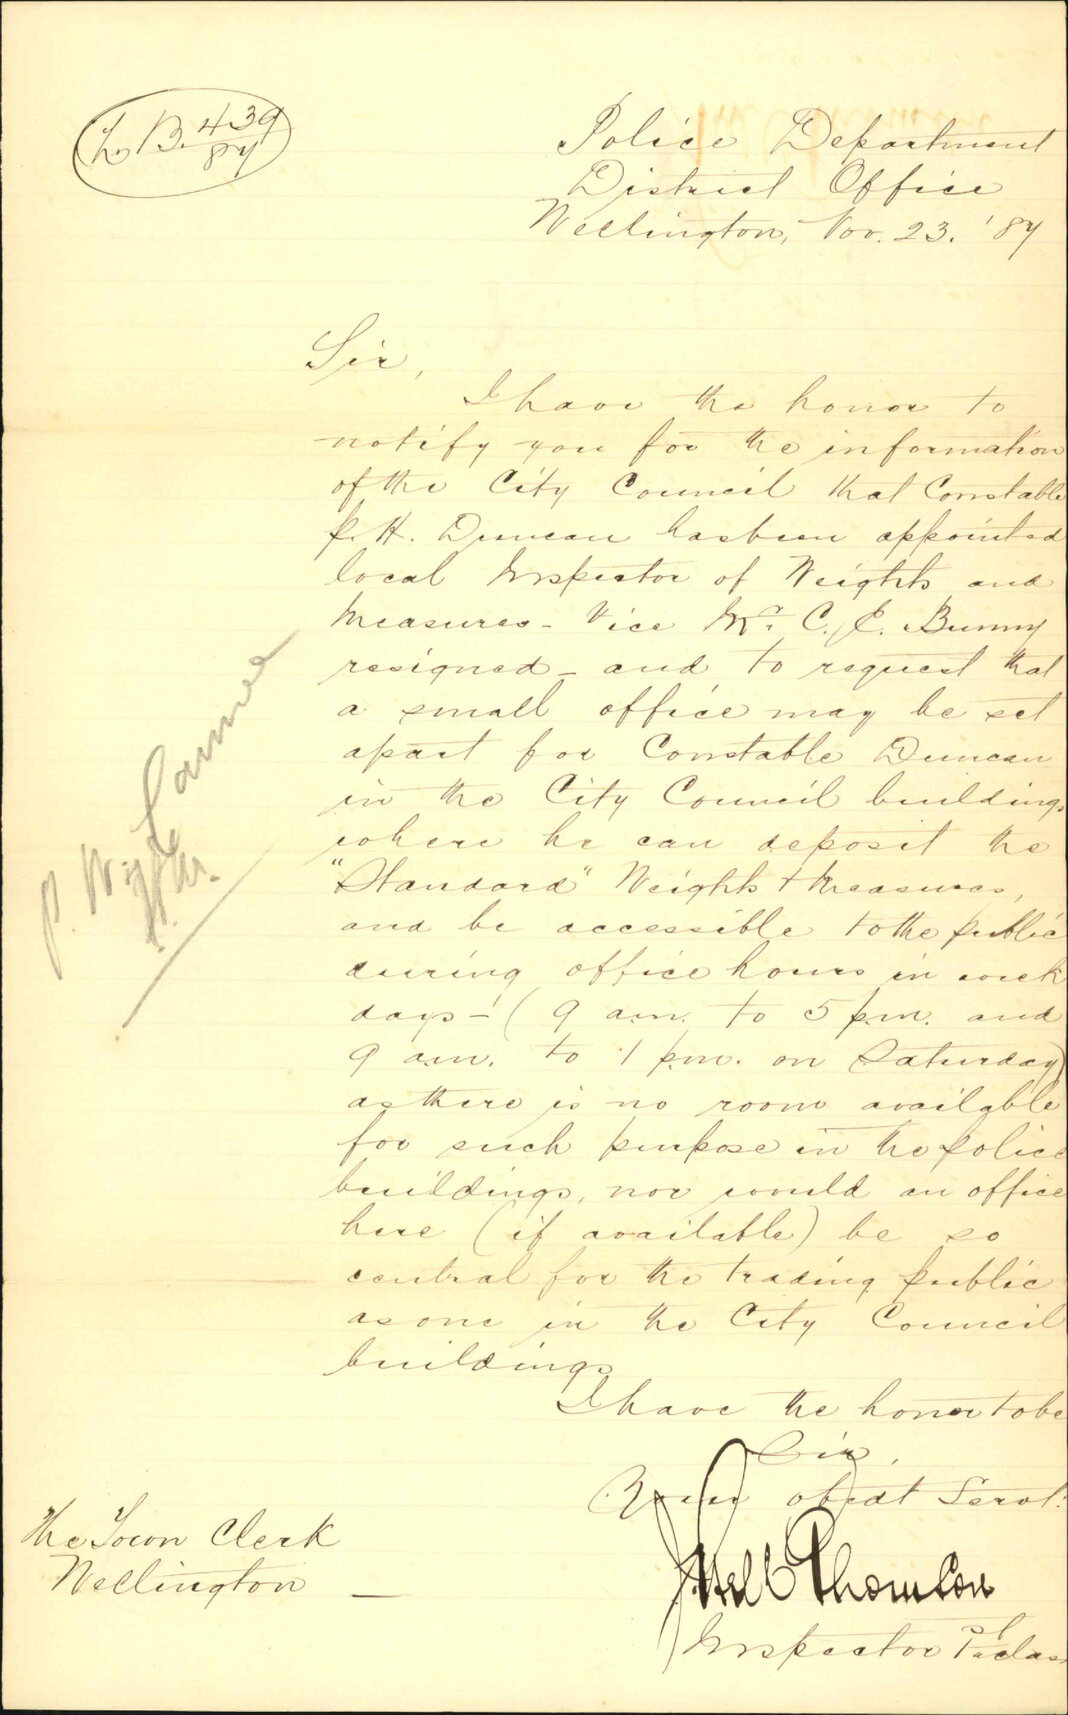 L. B. 439/87
Police Department
District Office
Wellington, Nov. 23. '87
Sir,
I have the honor to
notify you for the information
of the City Council that Constable
P. H. Duncan has been appointed
local Inspector of Weights and
Measures - Vice Mr. C. E. Bunny
resigned - and to request that
a small office may be set
apart for Constable Duncan
in the City Council buildings
where he can deposit the
"Standard" Weights + Measures,
and be accessible to the public
during office hours in week
days - (9 a.m. to 5 p.m. and
9 a.m. to 1 p.m. on Saturday)
as there is no room available
for such purpose in the police
buildings, nor would an office
here (if available) be so
central for the trading public
as one in the City Council
buildings
I have the honor to be
Sir,
Your obedt Servt.
Thomson
Inspector 1st class
The Town Clerk
Wellington